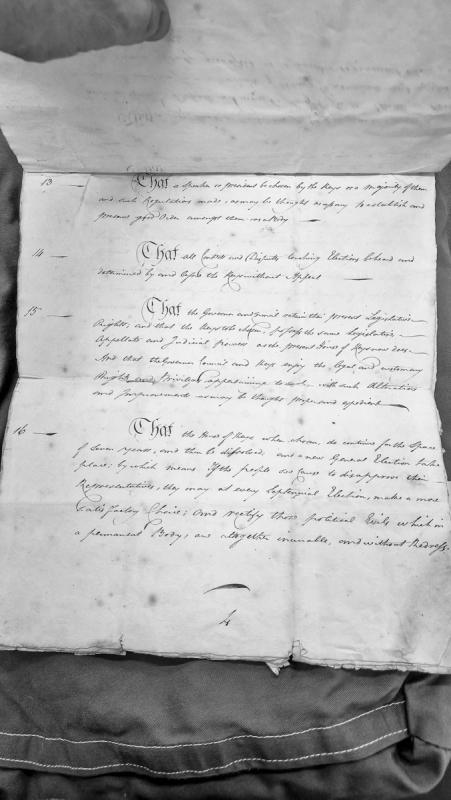 13 — That a speaker or president be chosen by the Keys or a Majority of them
and such Regulations made, as may be thought necessary to establish and
preserve good Order amongst them as a Body —
14 — That all Contests and Disputes touching Elections be heard and
determined by and before the Keys without Appeal —
15 — That the Governor and Council retain their present Legislative
Rights, and that the Keys to be chosen, possess the same Legislative
Appellate and Judicial powers as the present House of Keys now does —
And that the Governor Council and Keys enjoy the legal and customary
Rights and Privileges appertaining to each with such Alterations
and Improvements as may be thought proper and expedient —
16 — That the House of Keys when chosen, do continue for the Space
of Seven years, and then be dissolved, and a new General Election take
place; by which means If the people see Cause to disapprove their
Representatives, they may at every Septennial Election, make a more
Satisfactory Choice; and rectify those political Evils which in
a permanent Body, are altogether incurable, and without Redress.
4